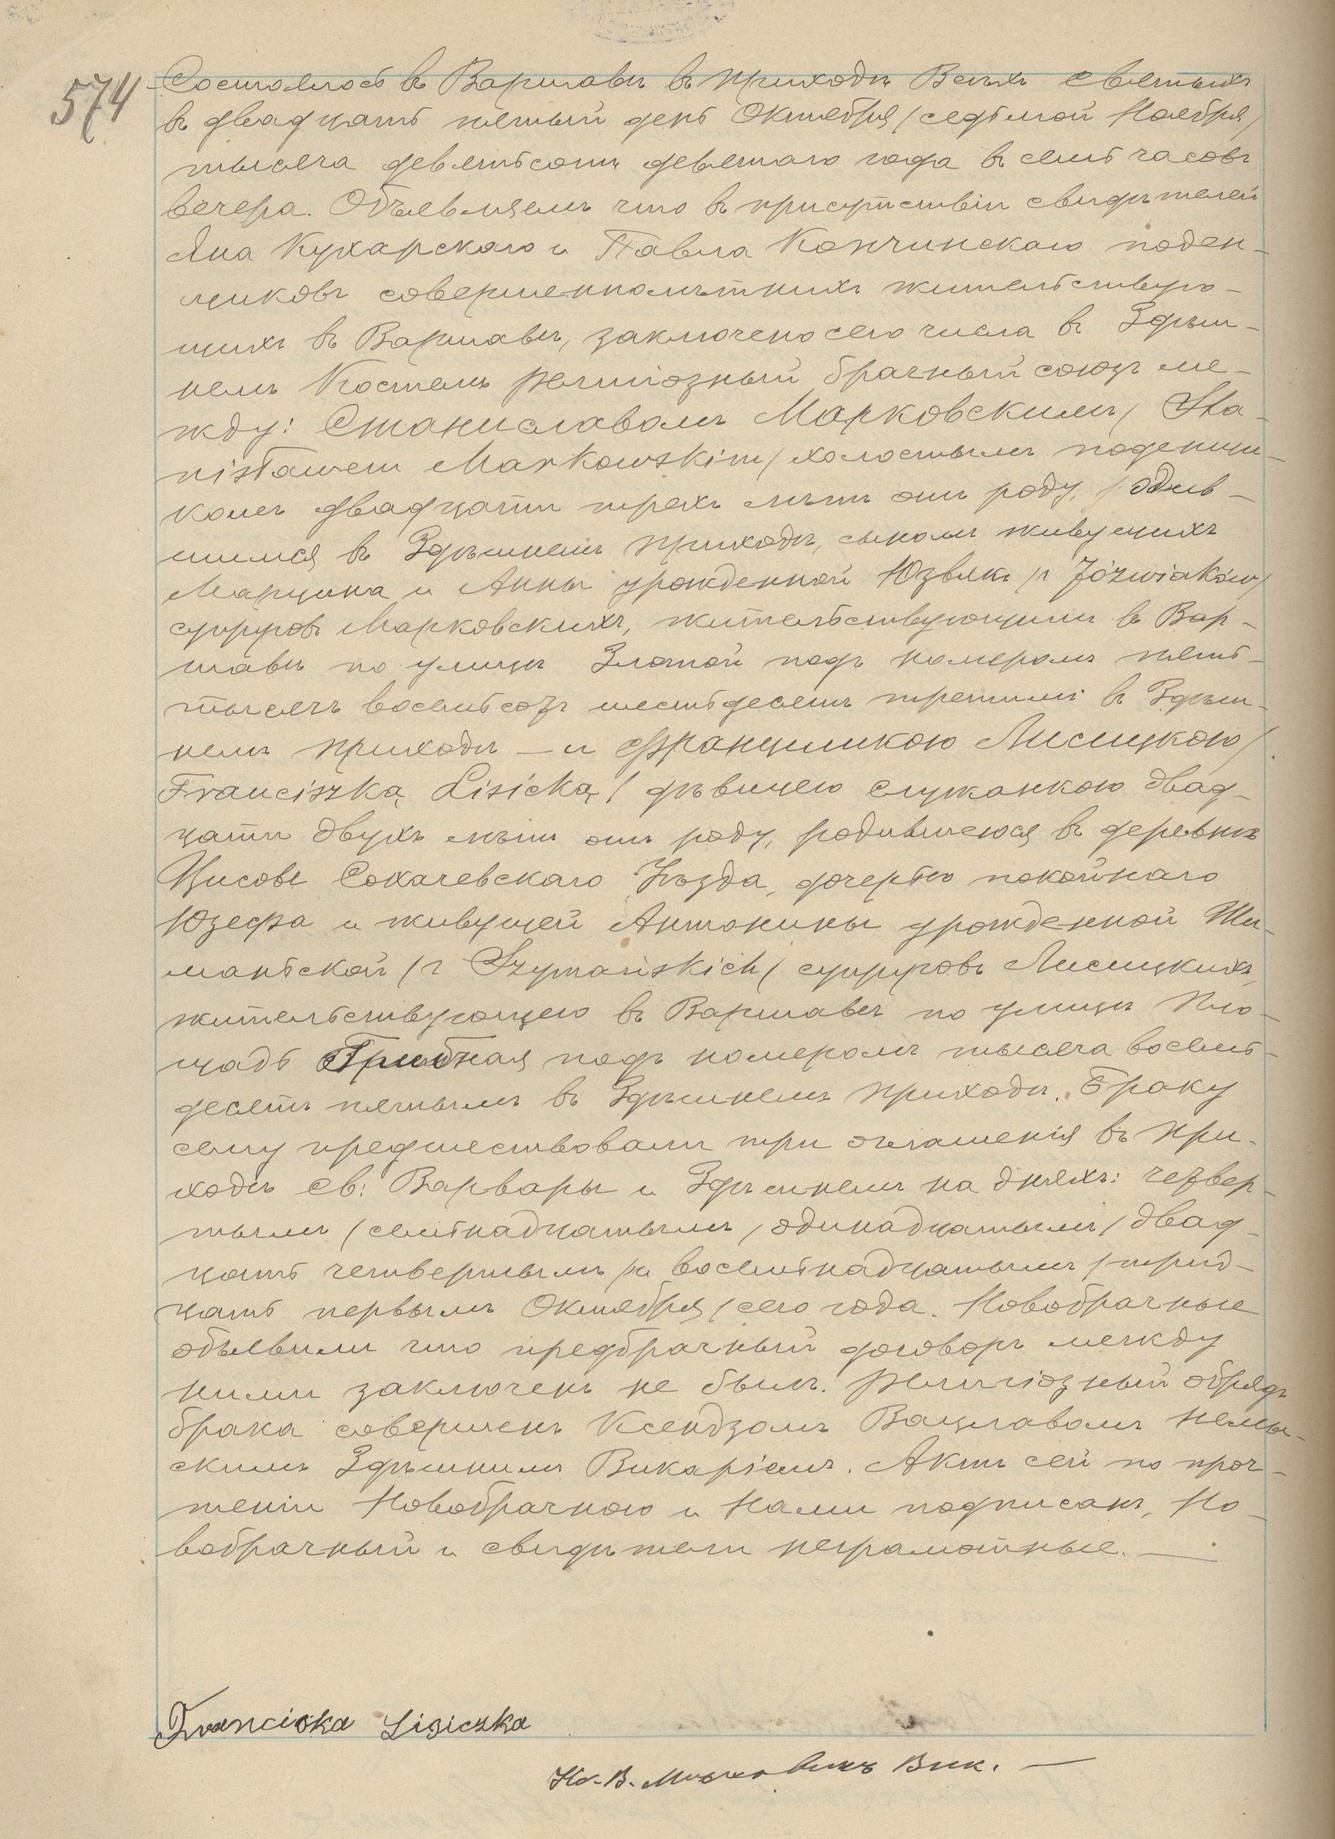 574
Состоялось въ Варшавѣ въ приходѣ Всѣхъ святыхъ
въ двадцать пятый день Октября /седьмой Ноября/
тысяча девятьсотъ девятаго года въ семь часовъ
вечера. Объявляемъ что въ присутствіи свидѣтелей
Яна Кухарскаго и Павла Кончинскаго поден-
щиковъ совершеннолѣтнихъ жительствую-
щихъ въ Варшавѣ, заключено сего числа въ Здѣш-
немъ Костелѣ религіозный брачный союзъ ме-
жду: Станиславомъ Марковскимъ / Sta-
nisławem Markowskim / холостымъ поденщи-
комъ двадцати трехъ лѣтъ отъ роду, родив-
шимся въ Здѣшнемъ приходѣ, сыномъ живущихъ
Марцина и Анны урожденной Юзвякъ /z Józwiaków/
супруговъ Марковскихъ, жительствующимъ въ Вар-
шавѣ по улицѣ Златой подъ номеромъ пять
тысячъ восемьсотъ шестьдесятъ третимъ въ Здѣш-
немъ приходѣ — и Францишкою Лисицкою /
Franciszką Lisicką / дѣвицею служанкою двад-
цати двухъ лѣтъ отъ роду, родившеюся въ деревнѣ
Цисове Сохачевскаго Уѣзда, дочерью покойнаго
Юзефа и живущей Антонины урожденной Ши-
манской /z Szymańskich/ супруговъ Лисицкихъ,
жительствующею въ Варшавѣ по улицѣ Пло-
щадь подъ номеромъ тысяча восемь-
десятъ пятымъ въ Здѣшнемъ приходѣ. Браку
сему предшествовали три оглашенія въ при-
ходѣ Св: Варвары и Здѣшнемъ на дняхъ: четвер-
тымъ /семнадцатымъ/, одинадцатымъ / двад-
цать четвертымъ / и восемьнадцатымъ / трид-
цать первымъ Октября / сего года. Новобрачные
объявили что предбрачный договоръ между
ними заключенъ не былъ. Религіозный обрядъ
брака совершенъ Ксендзомъ Вацлавомъ
скимъ Здѣшнимъ Викаріемъ. Актъ сей по проч-
теніи Новобрачною и Нами подписанъ, Но-
вобрачный и свидѣтели неграмотные. —
Franciska Lisiczka
Кс. В. Вик. —